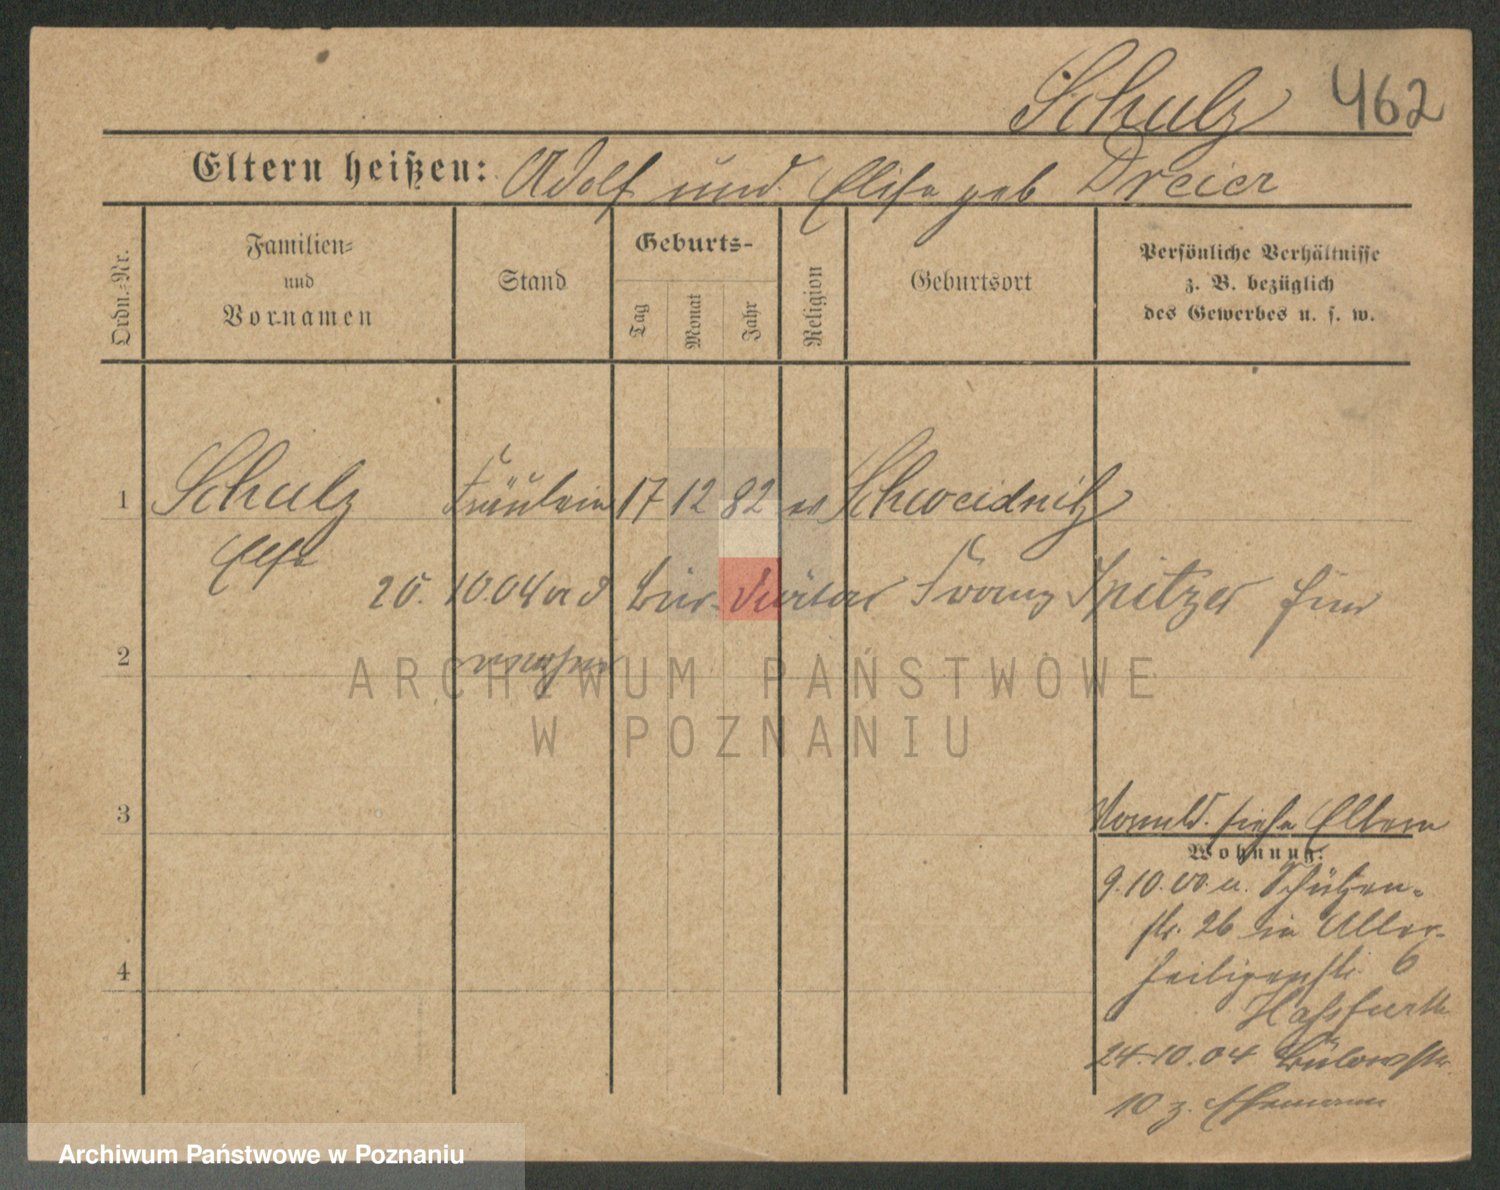 Schulz 462
Eltern heißen: Adolf und Elise geb Dreier
Ordn.-Nr.
Familien-
und
Vornamen
Stand
Geburts-
Tag
Monat
Jahr
Religion
Geburtsort
Persönliche Verhältnisse
z. B. bezüglich
des Gewerbes u. s. w.
1 Schulz Fräulein 17 12 82 ev Schweidnitz
Else
20. 10.04 Franz Spitzer hier
2
ARCHIWUM PAŃSTWOWE
W POZNANIU
3
siehe Eltern
Wohnung:
9.10.00 a. Schützen-
str. 26 in Aller-
heiligenstr. 6
Hassfurth
24.10.04 Bülowstr.
10 z. Ehemann
4
Archiwum Państwowe w Poznaniu